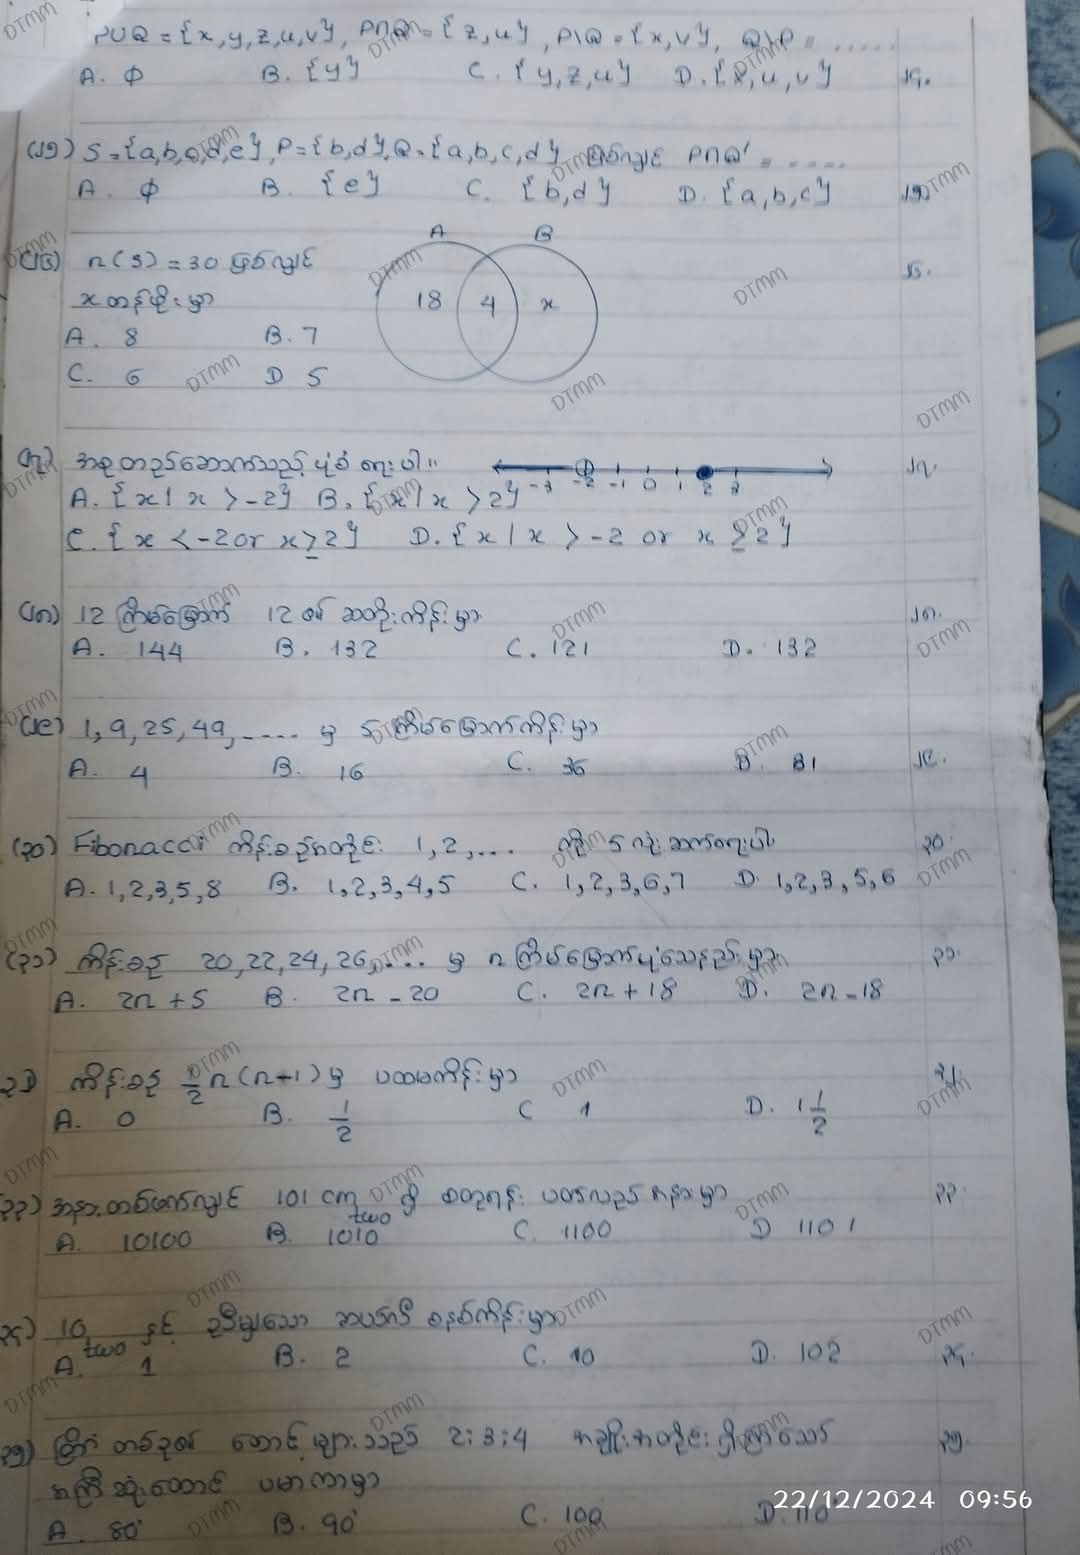 PUQ = {x,y,z,u,v}, P∩Q = {z,u}, P\Q = {x,v}, Q\P = .....
A. φ B. {y} C. {y,z,u} D. {x,u,v} ၂၄.
(၂၅) S={a,b,c,d,e}, P={b,d}, Q={a,b,c,d} ဖြစ်လျှင် P∩Q' = .....
A. φ B. {e} C. {b,d} D. {a,b,c} ၂၅
A B
(၂၆) n(S) = 30 ဖြစ်လျှင် ၂၆.
x တန်ဖိုးမှာ 18 4 x
A. 8 B. 7
C. 6 D 5
၂၇) အစုတည်ဆောက်သည့်ပုံစံ ရေးပါ။ -3 -2 -1 0 1 2 3 ၂၇.
A. {x | x > -2} B. {x | x > 2}
C. {x < -2 or x ≥ 2} D. {x | x > -2 or x ≥ 2}
(၂၈) 12 ကြိမ်မြောက် 12 ၏ ဆတိုးကိန်းမှာ ၂၈.
A. 144 B. 132 C. 121 D. 132
(၂၉) 1, 9, 25, 49, ..... မှ ၅ ကြိမ်မြောက်ကိန်းမှာ
A. 4 B. 16 C. 36 D. 81 ၂၉.
(၃၀) Fibonacci ကိန်းစဉ်အတိုင်း 1, 2, ... ကို 5 လုံး ဆက်ရေးပါ ၃၀.
A. 1,2,3,5,8 B. 1,2,3,4,5 C. 1,2,3,6,7 D. 1,2,3,5,6
(၃၁) ကိန်းစဉ် 20, 22, 24, 26, .... မှ n ကြိမ်မြောက်ပုံသေနည်းမှာ ၃၁.
A. 2n + 5 B. 2n - 20 C. 2n + 18 D. 2n - 18
၃၂) ကိန်းစဉ် 1/2 n(n+1) မှ ပထမကိန်းမှာ ၃၂.
A. 0 B. 1/2 C 1 D. 1 1/2
၃၃) အနားတစ်ဖက်လျှင် 101 cm ရှိ စတုရန်း ပတ်လည်အနားမှာ ၃၃.
two
A. 10100 B. 1010 C. 1100 D 1101
၃၄) 10 နှင့် ညီမျှသော ဆယ်လီစနစ်ကိန်းမှာ
two
A. 1 B. 2 C. 10 D. 102 ၃၄.
၃၅) တြိဂံတစ်ခု၏ ထောင့်များသည် 2:3:4 အချိုးအတိုင်းရှိကြသော် ၃၅.
အကြီးဆုံးထောင့် ပမာဏမှာ
A. 80° B. 90° C. 100 D. 110°
22/12/2024 09:56